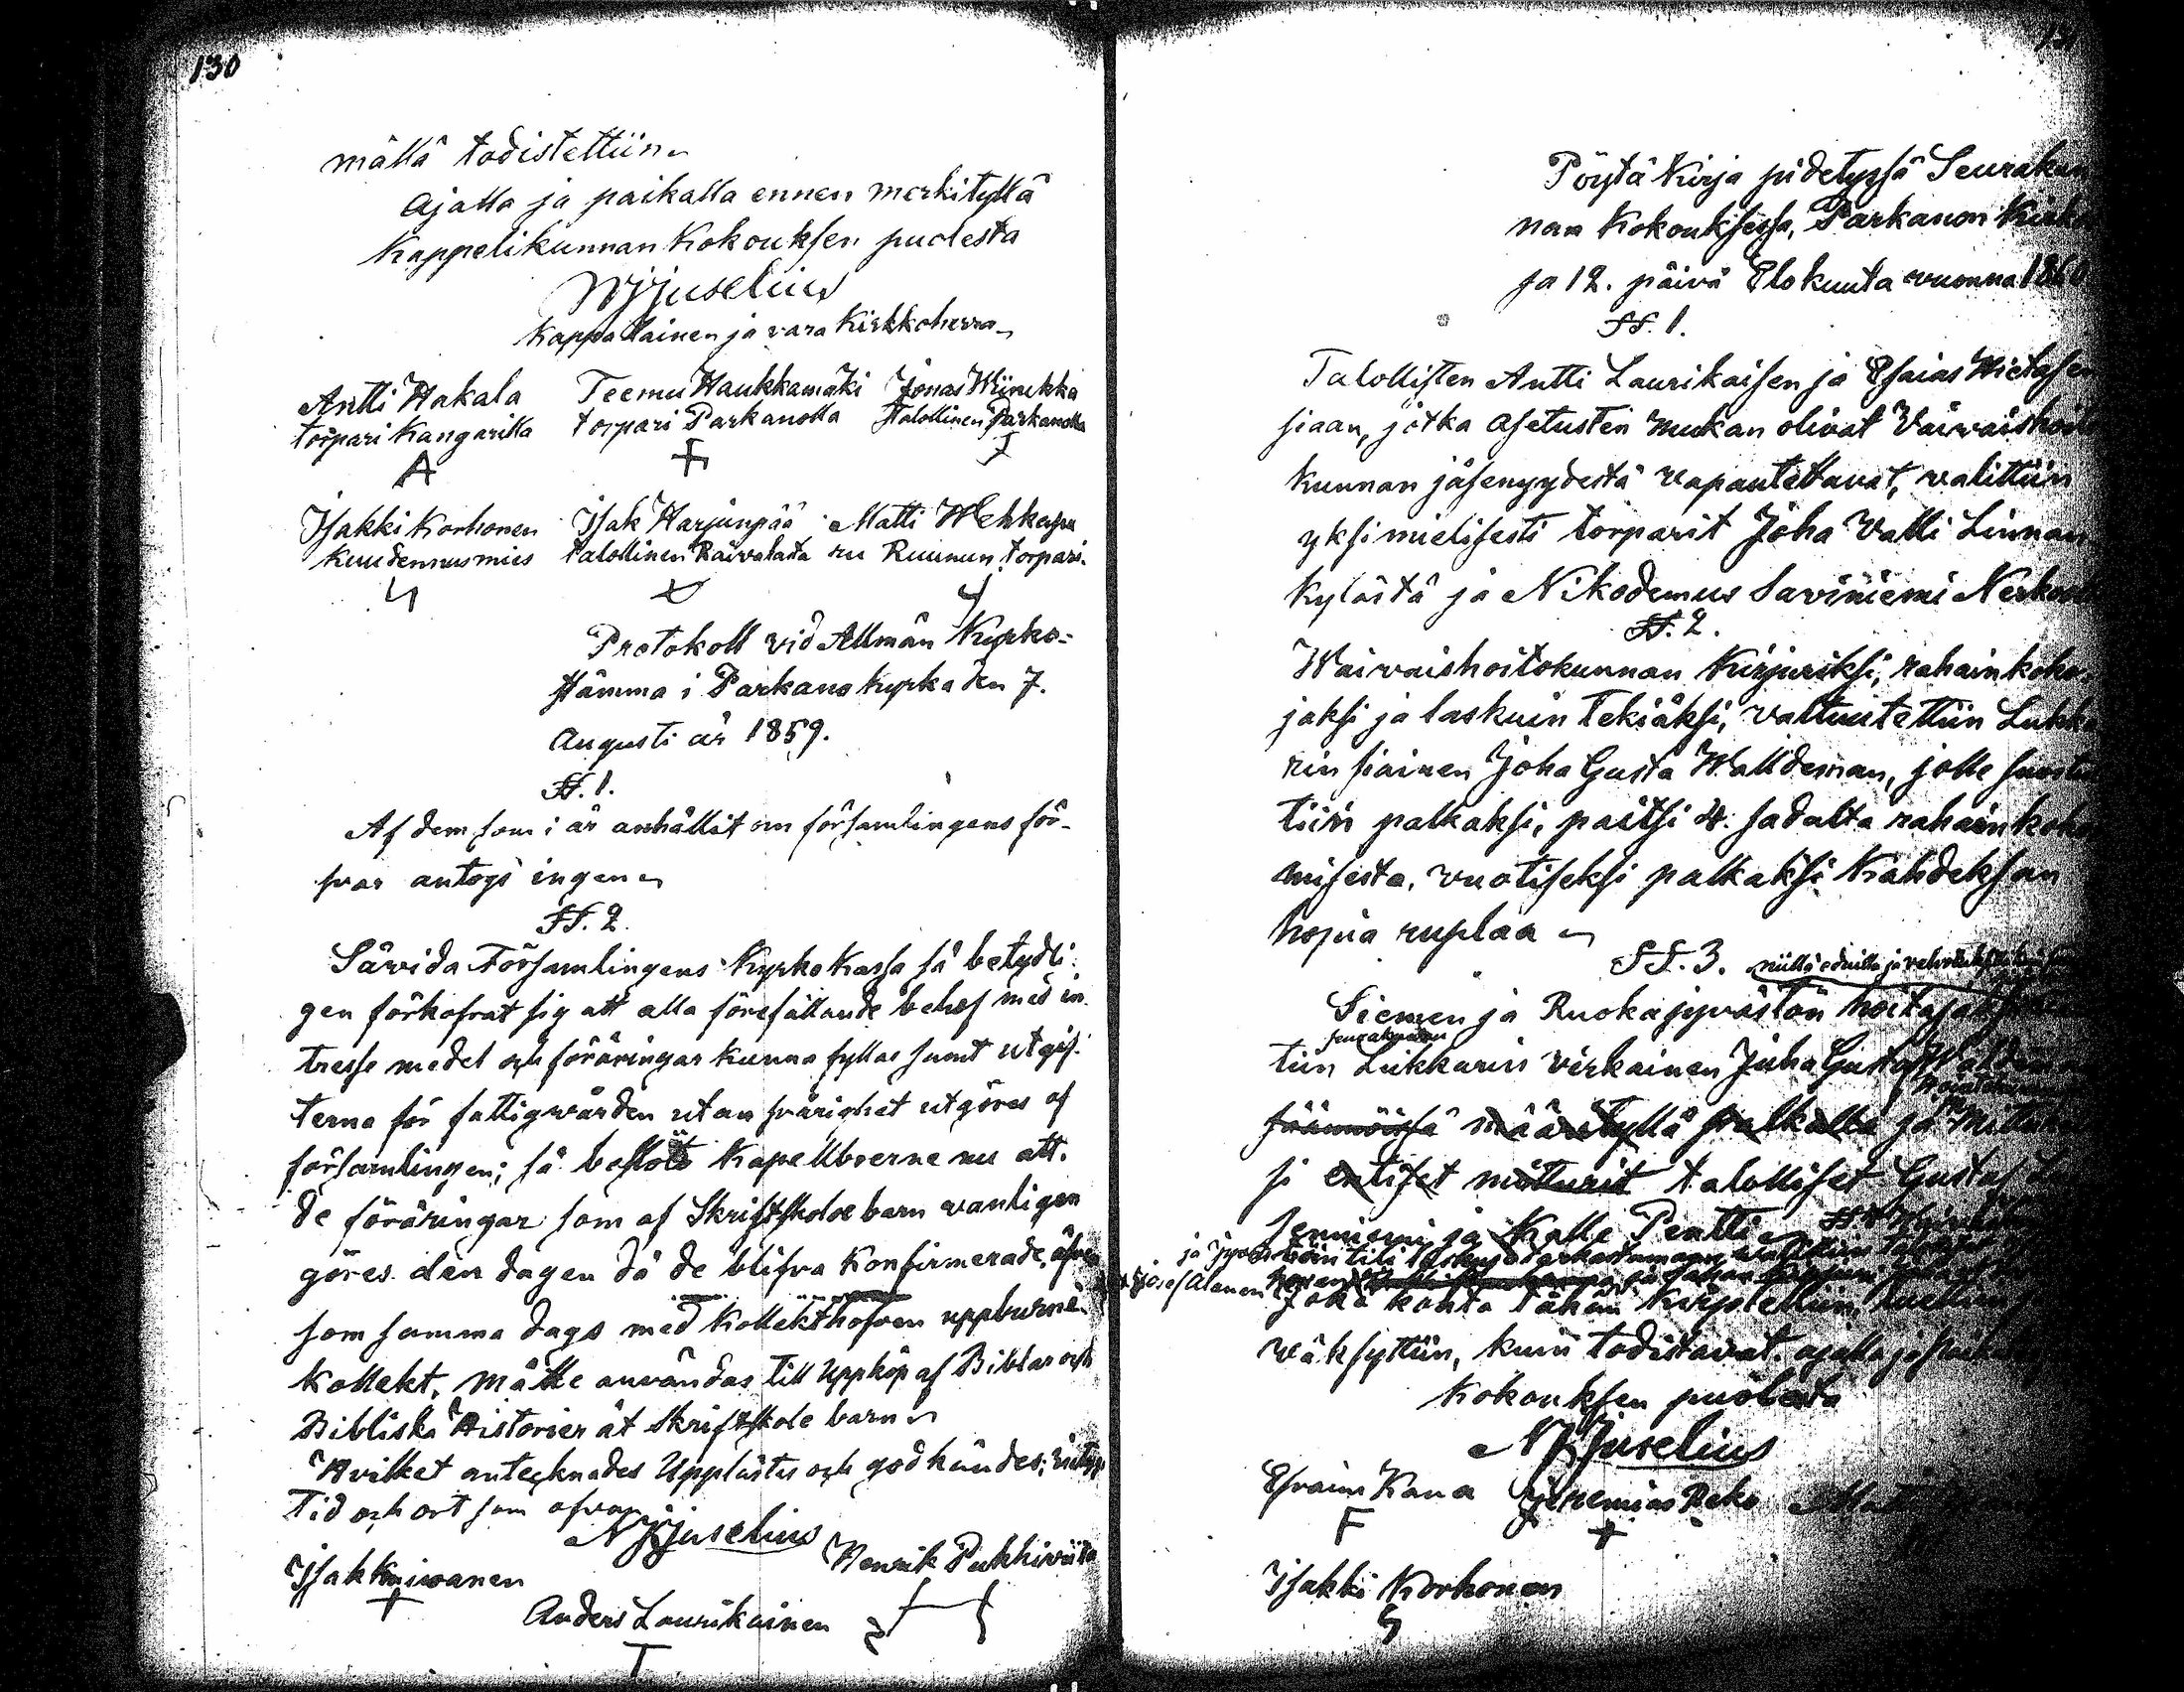 130
mällä todistettiin
Ajalla ja paikalla ennen merkityllä
Kappelikunnan Kokouksen puolesta
NJjuselius
Kappallainen ja vara Kirkkoherra
Antti Hakala Teemu Haukkamäki Jonas Wiinikka
torpari Kangarilla torpari Parkanolla Talollinen Parkanolla
Isakki Korhonen Isak Harjunpää Matti Wehkaspu
Kuudennusmies talollinen Raivalasta ru Ruunun torpari.
Protokoll vid Allmän Kyrko-
stämma i Parkano kyrka den 7.
Augusti år 1859.
§§. 1.
Af dem som i år anhållit om församlingens för-
svar antogs ingen
§§. 2.
Såvida Församlingens Kyrko Kassa så betydli-
gen förkofrat sig att alla förefallande behof med in-
tresse medel och föräringar kunna fyllas samt utgif-
terna för fattigvården utan svårighet utgöres af
församlingen; så beslöts Kapellboerne nu att.
de föräringar som af Skriftskole barn vanligen
göres den dagen då de blifva Konfirmerade, äfven
som samma dags med Kollekthofven uppburne
Kollekt, måtte användas till Uppköp af Biblar och
Bibliska Historier åt Skriftskole barn
Hvilket antecknades Upplästes och godkändes;
Tid och ort som ofvan
NJjuselius
Isak Kaivanen Henrik Pukkiviita
Anders Laurikainen
Pöytä Kirja pidetyssä Seurakun
nan Kokouksessa, Parkanon Kirko
sa 12. päivä Elokuuta vuonna 1860
§§. 1.
Talollisten Antti Laurikaisen ja Esaias Hietasen
siaan, jotka Asetusten mukan olivat Vaivaishoito
kunnan jäsenyydestä vapautettavat, valittiin
yksimielisesti torparit Joha Valli Linnan
kylästä ja Nikodemus Saviniemi Nerkoo
§§. 2.
Waivaishoitokunnan Kirjuriksi, rahain koko-
jaksi ja laskuin Tekiäksi, valtuutettiin Lukka
rin siainen Joha Gusta Walldeman, jolle suostut
tiin palkaksi, paitsi 4. sadalta rahain koko
misesta, vuotiseksi palkaksi Kahdeksan
hopia ruplaa
§§. 3. niillä eduilla ja
Siemen ja Ruokajyvästön hoitajaksi
seurakunnan
tiin Lukkarin virkainen Juha Gusta Waldeman
säännöissä määrätyllä palkalla ja Mittu
si entiset mitturit talolliset Gustaf
ja Kalle Pentti
ja Jyvästöin tili laskuja tarkastamaan valittiin
Josef Alanen
Joka kohta tähän Kirjotettiin, luettiin ja
väksyttiin, kuin todistavat. ajalla ja paik
Kokouksen puolesta
NJjuselius
Efraim Kana Jeremias Peko Mat
Isakki Korhonen